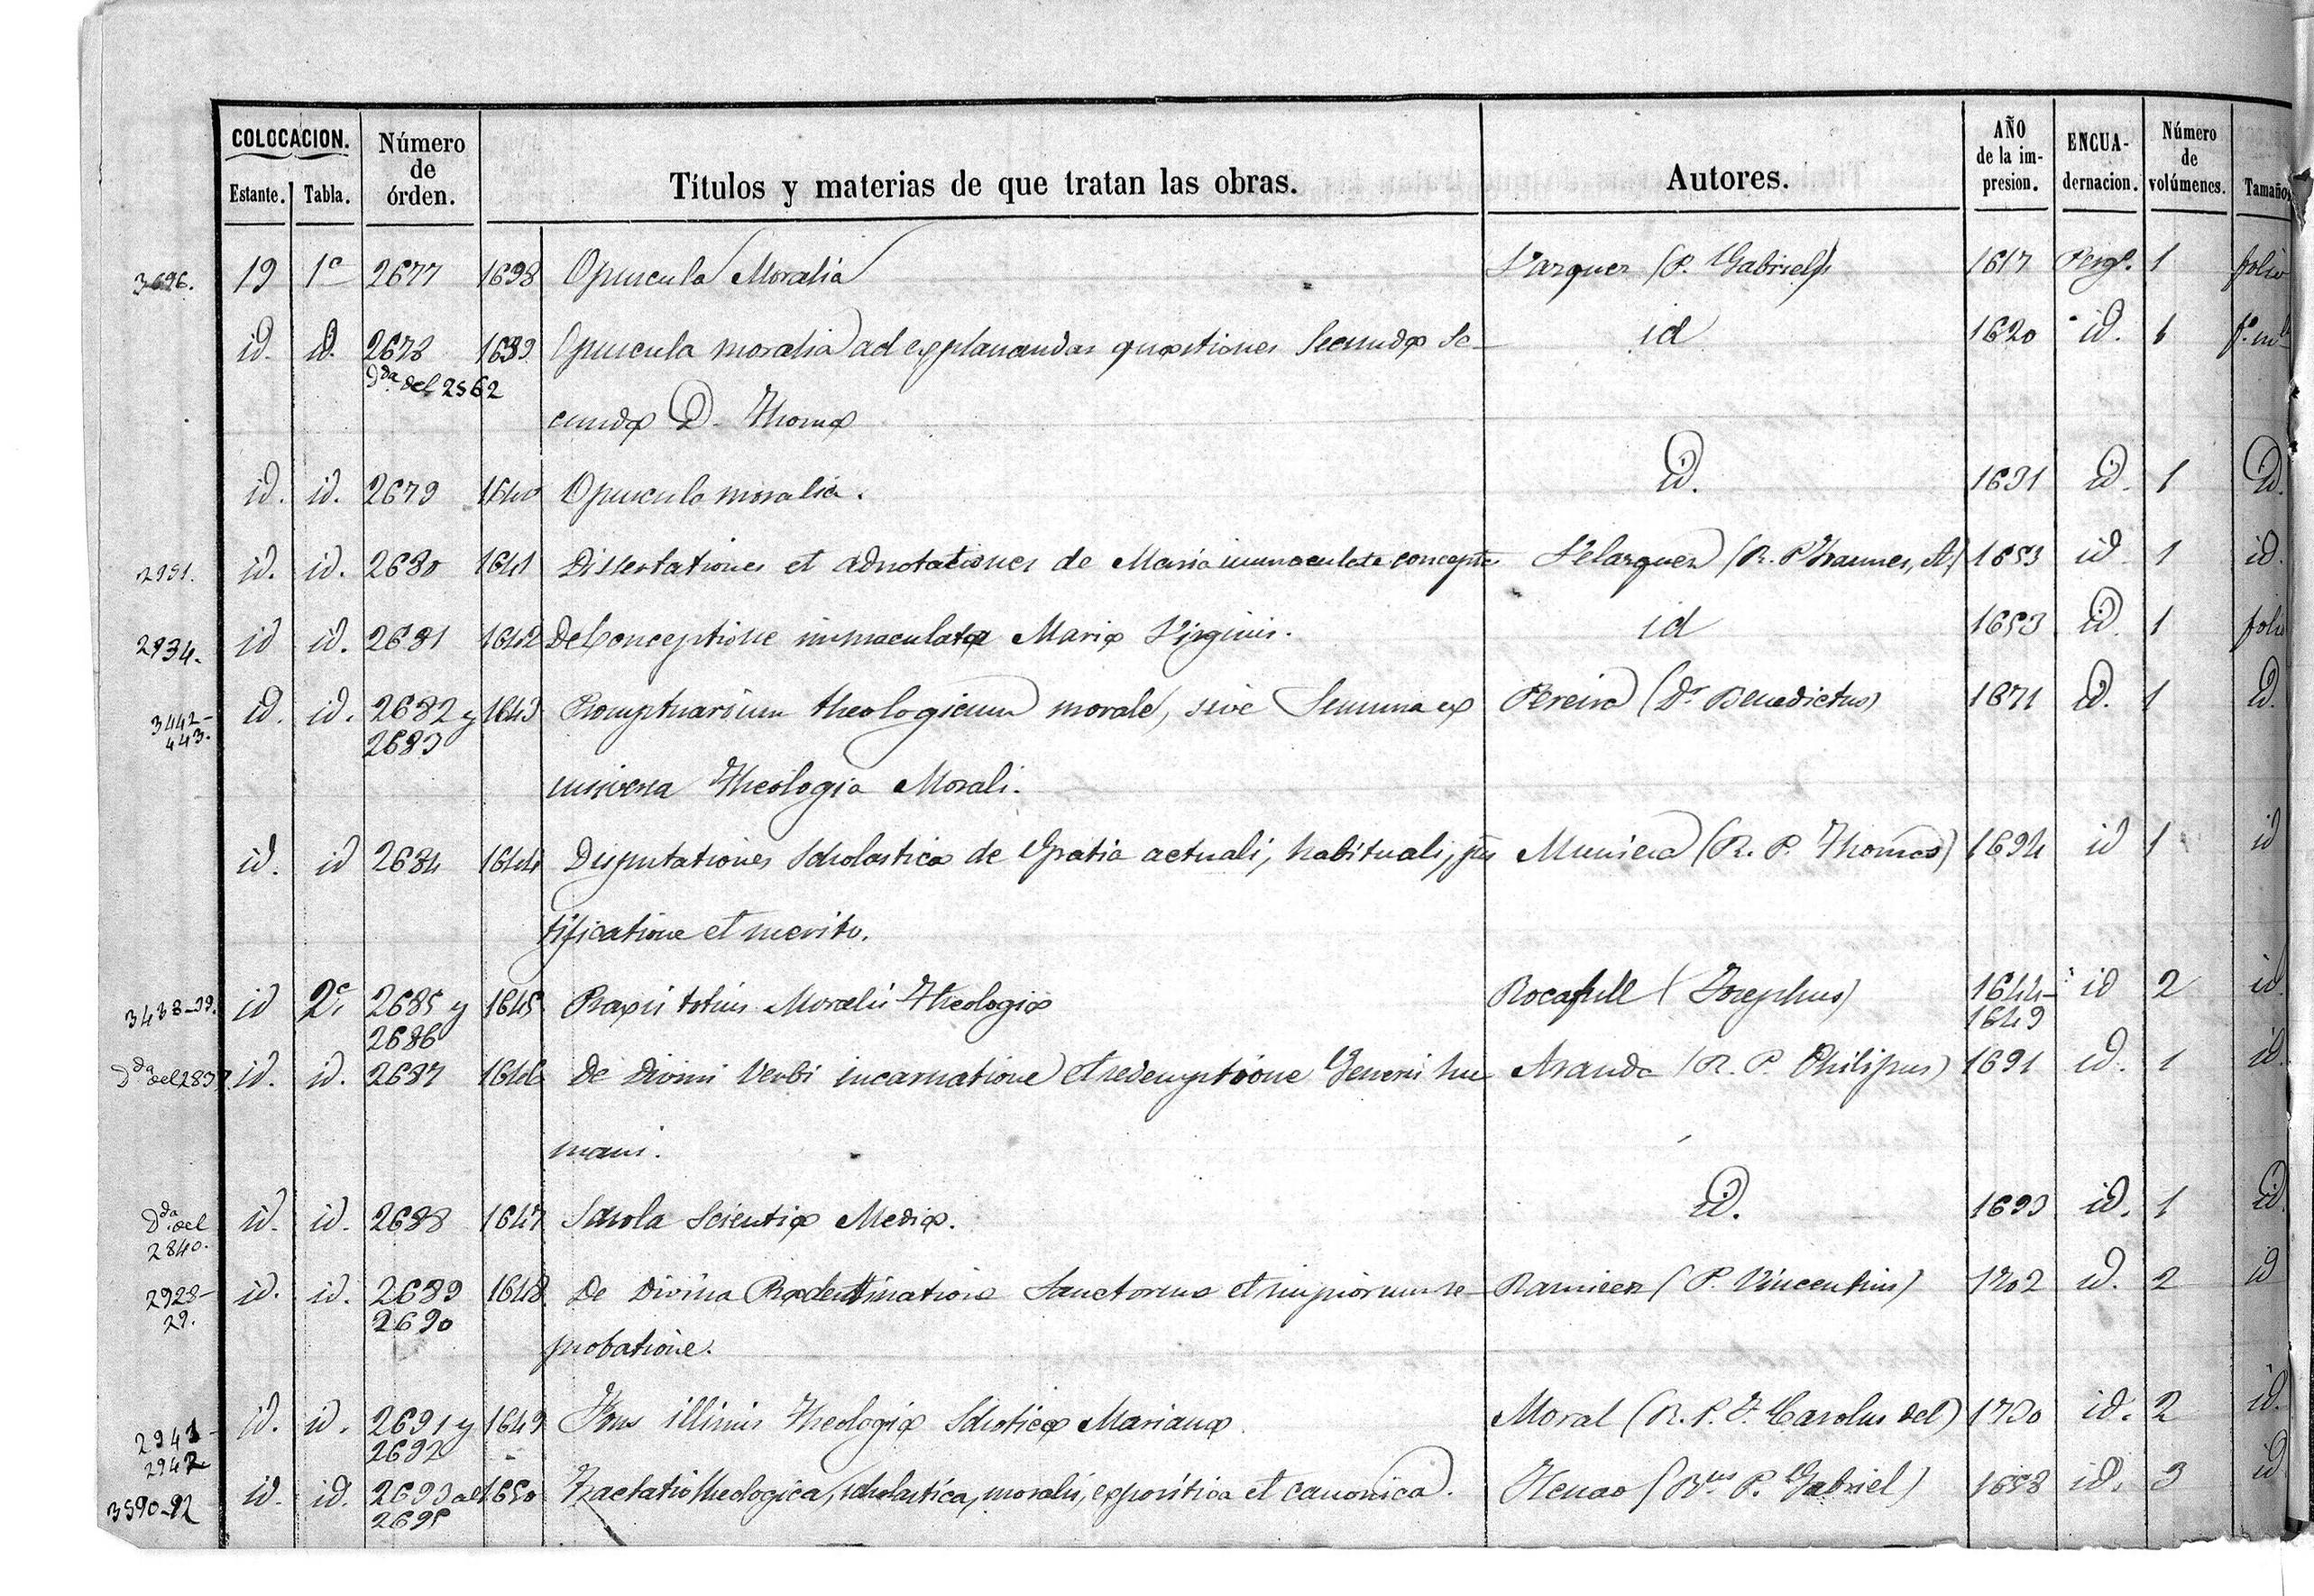 COLOCACION.
Estante. Tabla.
Número de órden.
Títulos y materias de que tratan las obras.
Autores.
AÑO de la impresion.
ENCUADERNACION.
Número de volúmenes.
Tamaño
3696. 19 1ª 2677 1638 Opuscula Moralia Vazquez (P. Gabriel) 1617 Pergº. 1 folio
id. id. 2678 1639 Opuscula moralia ad explanandas quæstiones Secundæ Se- id 1620 id. 1 fº. mla
Dda. del 2562
cundæ D. Thomæ
id. id. 2679 1640 Opuscula moralia. id. 1631 id. 1 id.
2951. id. id. 2680 1641 Dissertationes et adnotationes de Maria inmaculate concepte Velazquez (R. P. Joannes, A.) 1653 id 1 id.
2934. id id. 2681 1642 De Conceptione inmaculatæ Mariæ Virginis. id 1653 id. 1 folio
3442- id. id. 2682 y 1643 Promptuarium theologicum morale, sive Summa ex Pereira (Dr. Benedictus) 1671 id. 1 id.
443. 2683
universa Theologia Morali.
id. id 2684 1644 Disputationes Scholastica de Gratia actuali, habituali, jus Muniera (R. P. Thomas) 1694 id 1 id
tificatione et merito.
3438-39. id 2ª 2685 y 1645 Praxis totius Moralis Theologiæ Rocafull (Josephus) 1644- id 2 id.
2686 1649
Dda del 2837 id. id. 2687 1646 De Divini Verbi incarnatione et redemptione Generis hu Aranda (R. P. Philipus) 1691 id. 1 id.
mani.
Dda. del id. id. 2688 1647 Schola Scientiæ Mediæ. id. 1693 id. 1 id.
2840.
2928- id. id. 2689 1648 De Divina Prædestinatione Sanctorum et impiorum re- Ramirez (P. Vincentius) 1702 id. 2 id
29. 2690
probatione.
2941- id. id. 2691 y 1649 Fons illimis Theologiæ Schoticæ Marianæ. Moral (R. P. F. Carolus del) 1730 id. 2 id.
2942 2692
3590-92 id. id. 2693 al 1650 Tractatio theologica, scholastica, moralis, expositiva et canonica. Henao (Rus. P. Gabriel) 1658 id. 3 id
2695